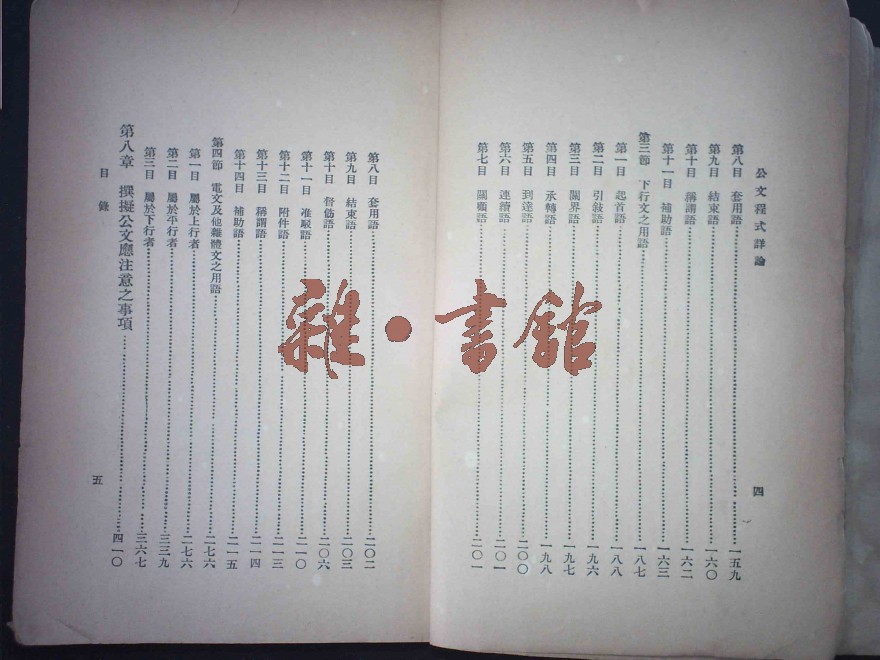 公文程式詳論
第八目 套用語……一五九
第九目 結束語……一六〇
第十目 稱謂語……一六二
第十一目 補助語……一六三
第三節 下行文之用語……一八七
第一目 起首語……一八八
第二目 引敍語……一九六
第三目 關界語……一九七
第四目 承轉語……一九八
第五目 到達語……二〇〇
第六目 連續語……二〇一
第七目 關顧語……二〇一
四
第八目 套用語……二〇二
第九目 結束語……二〇三
第十目 督飭語……二〇六
第十一目 准駁語……二一〇
第十二目 附件語……二一三
第十三目 稱謂語……二一四
第十四目 補助語……二一五
第四節 電文及他雜體文之用語……二七六
第一目 屬於上行者……二七六
第二目 屬於平行者……三三九
第三目 屬於下行者……三六七
第八章 撰擬公文應注意之事項……四一〇
目錄
五
雜·書館